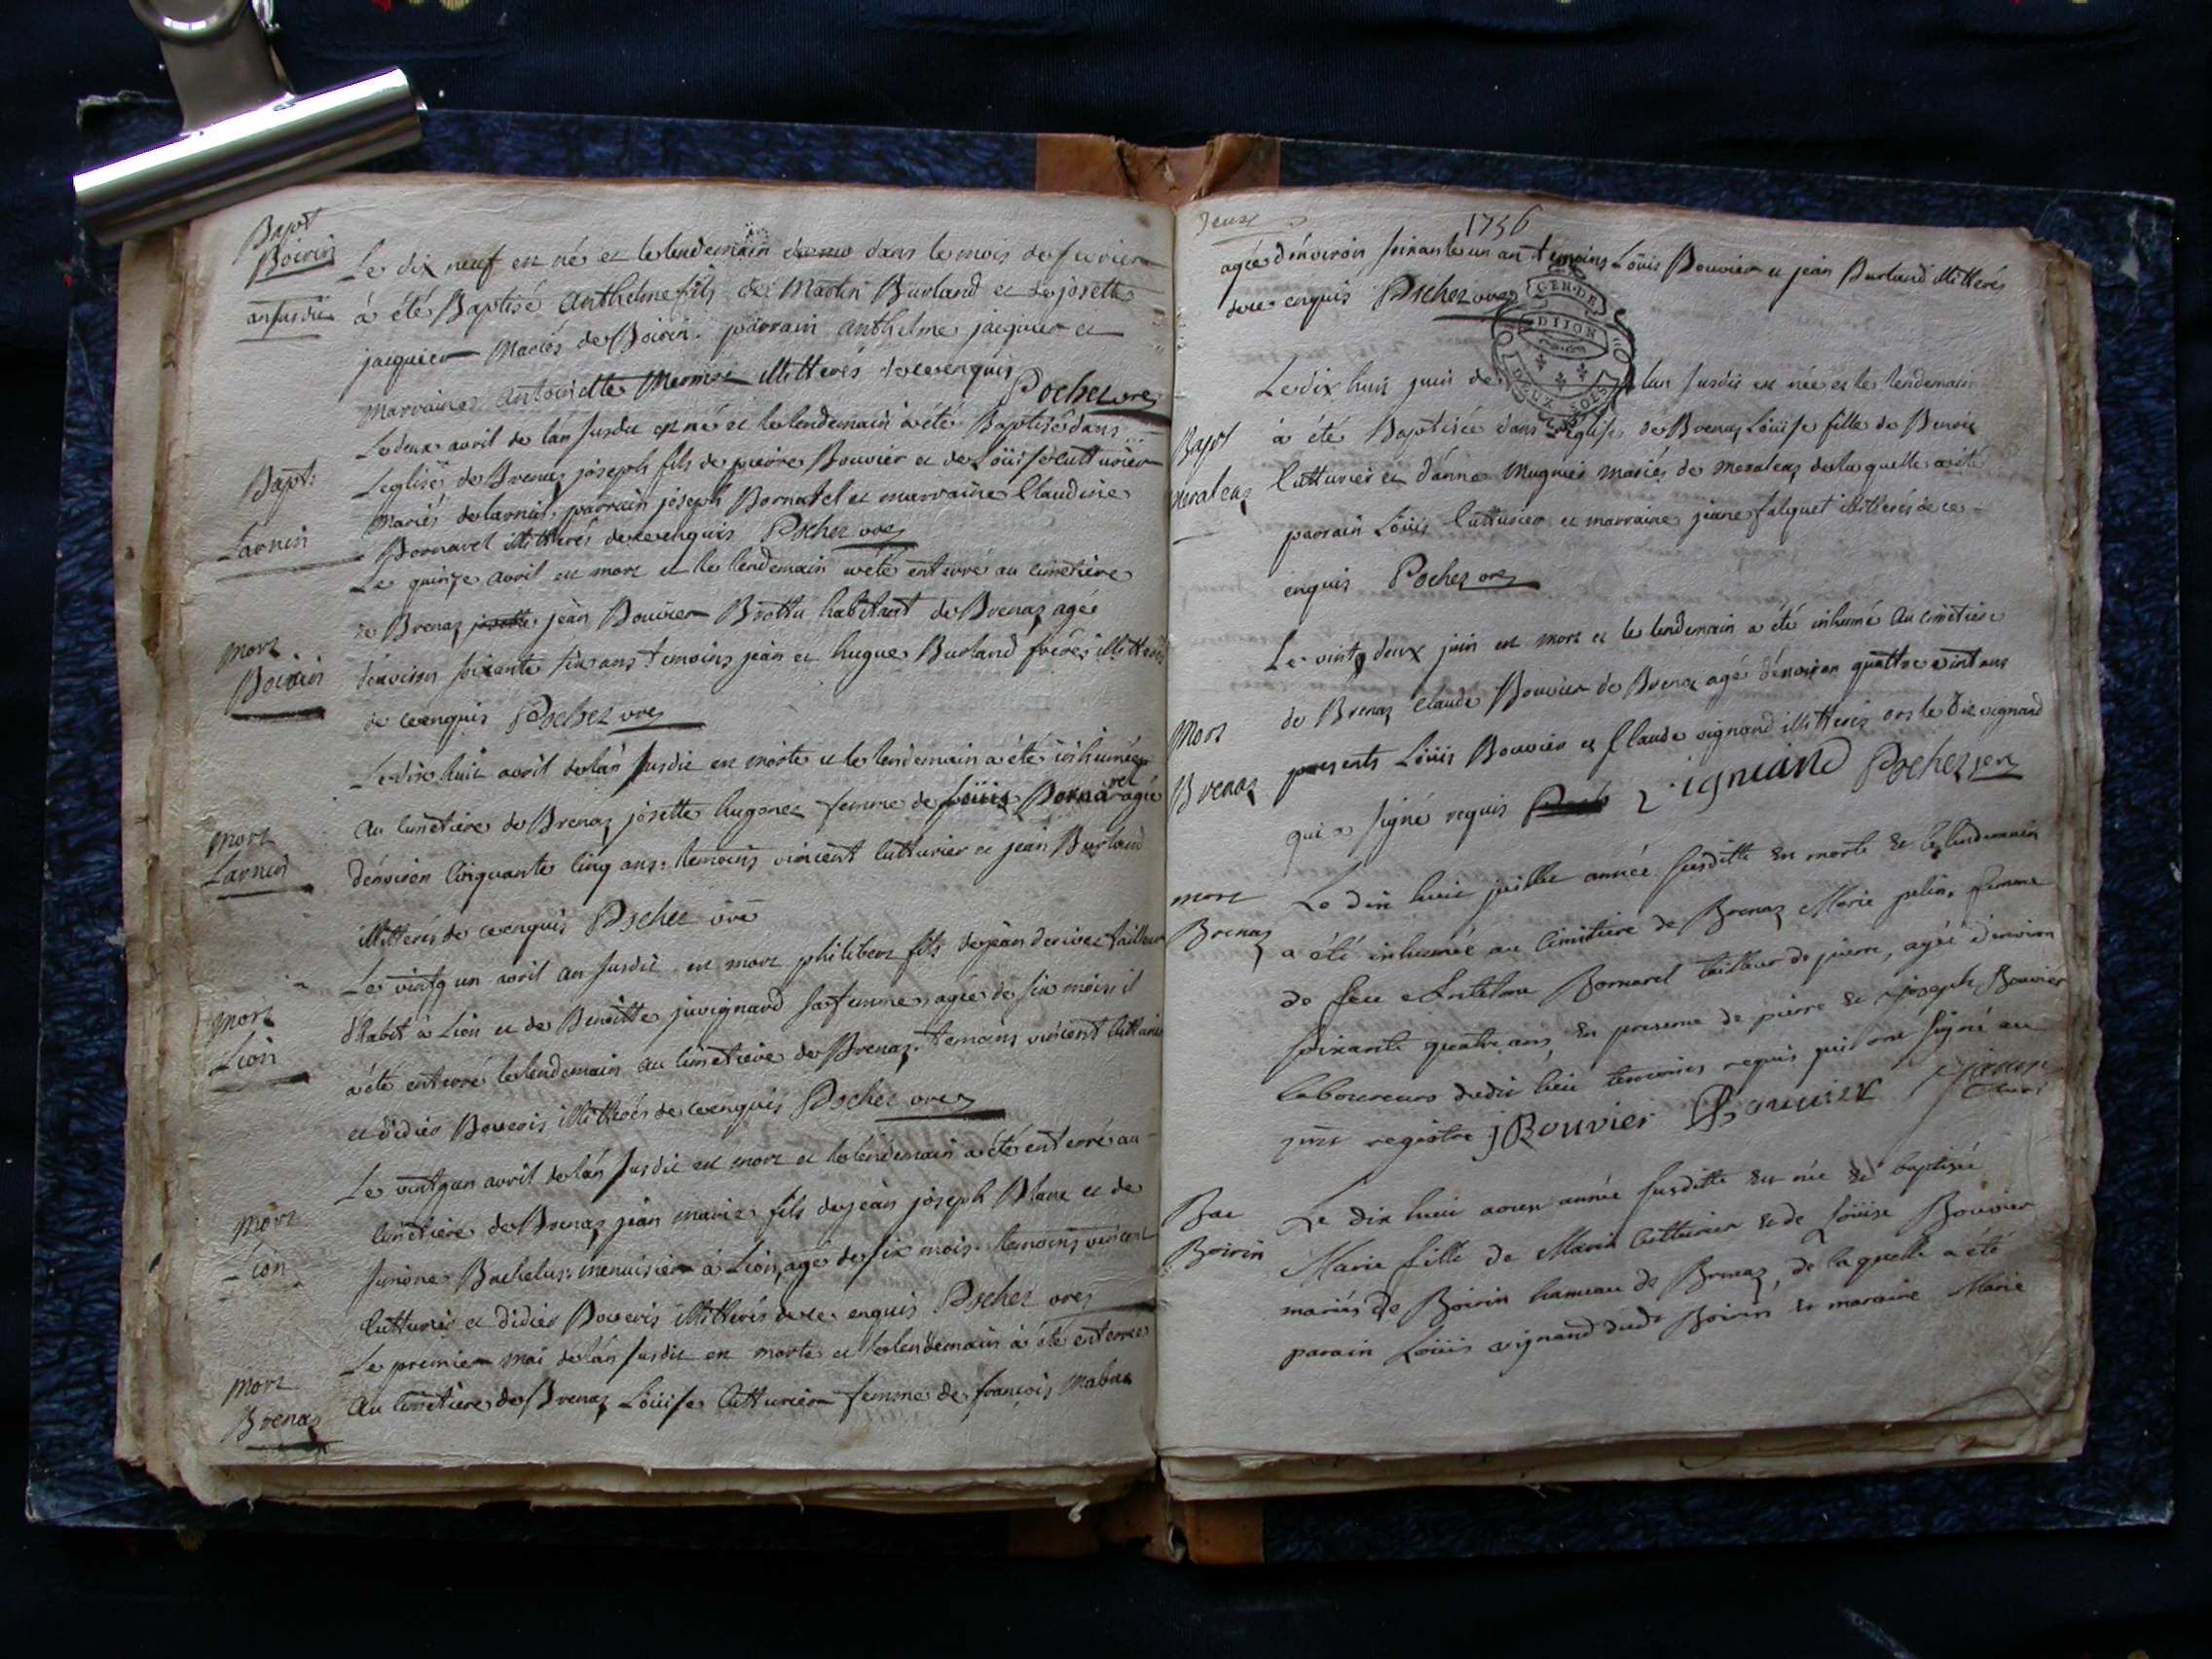 Bapt
Boirin
an susdit
Le dix neuf est né et le lendemain dans le mois de fevrier
à été Baptisé Anthelme fils de Martin Burland et de josette
jacquier Mariés de Boirin. parrain anthelme jacquier et
marraine antoinette Mermet illitterés de ce enquis
Pochet vre
Bapt
Larnin
Le deux avril de lán susdit est né et le lendemain à été Baptisé dans
Leglise de Brenaz joseph fils de pierre Bouvier et de Loüise Cutturier
mariés de Larnin. parrain joseph Bornarel et marraine Claudine
Bornarel illitterés de ce enquis Pochet vre
mort
Boirin
Le quinze avril est mort et le lendemain a été enterré au cimetiere
de Brenaz josette jean Bouvier Brottu habitant de Brenaz agé
dénviron soixante six ans temoins jean et hugue Burland freres illitterés
de ce enquis Pochet vre
mort
Larnin
Le dix huit avril de lán susdit est morte et le lendemain a été inhumée
au cimetiere de Brenaz josette hugonet femme de Loüis Bornarel agée
dénviron cinquante cinq ans. temoins vincent Cutturier et jean Burland
illitterés de ce enquis Pochet vre
mort
Lion
Le vintg un avril an susdit est mort philibert fils de jean derivet tailleur
d'habit à Lion et de Benoitte juvignard sa femme agée de six mois. il
a été enterré le lendemain au cimetiere de Brenaz. temoins vincent Cutturier
et didier Boveris illitterés de ce enquis Pochet vre
mort
Lion
Le vintg un avril de lán susdit est mort et le lendemain a été enterré au
cimetiere de Brenaz jean marie fils de jean joseph Blanc et de
simone Bachelus. menuisier à Lion, agé de six mois. temoins vincent
Cutturier et didier Boveris illitterés de ce enquis Pochet vre
mort
Brenaz
Le premier mai de lán susdit est morte et le lendemain à été enterrée
au cimetiere de Brenaz Loüise Cutturier femme de françois Mabou
Deux
1756
agée d'énviron soixante un an temoins Loüis Bouvier et jean Burland illitterés
de ce enquis Pochet vre
GEN DE
DIJON
DEUX SOLS
Bapt
Meraleaz
Le dix huit juin de lan susdit est née et le lendemain
à été Baptisée dans Léglise de Brenaz Loüise fille de Benoit
Cutturier et d'anne Mugnier mariés de Meraleaz de la quelle a été
parrain Loüis Cutturier et marraine jeane falquet illitterés de ce
enquis Pochet vre
Mort
Brenaz
Le vintg deux juin est mort et le lendemain a été inhumé au cimetiere
de Brenaz Claude Bouvier de Brenaz agé dénviron quattre vint ans
presents Loüis Bouvier et Claude vignand illitterés ors le dit vignand
qui a signé requis vigniand Pochet vre
mort
Brenaz
Le dix huit juillet année susditte est morte et le lendemain
a été inhumée au cimitiere de Brenaz Marie pelin, femme
de feu Antelme Bornarel tailleur de pierre, agée d'environ
soixante quatre ans en presence de pierre et joseph Bouvier
laboureurs dudit lieu temoins requis qui ont signé au
pnt registre jBouvier PBouvier
Bat
Boirin
Le dix huit aoust année susditte est née et baptisée
Marie fille de Marin Cutturier et de Loüise Bouvier
mariés de Boirin hameau de Brenaz, de laquelle a été
parain Loüis vignand dudt Boirin et maraine Marie